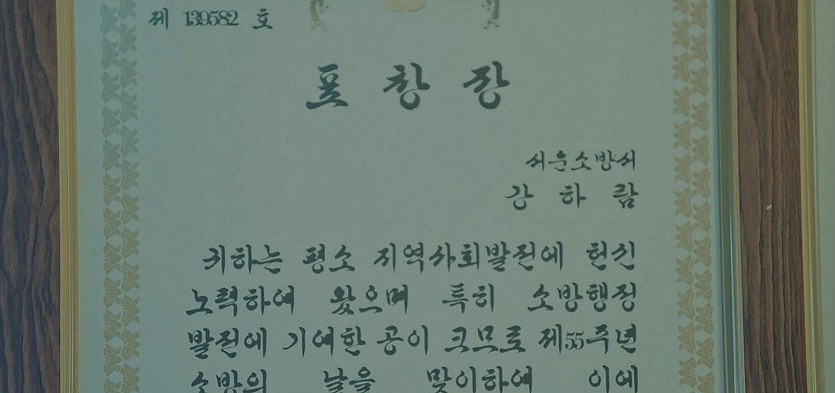 제 139582 호
표 창 장
서운소방서
강 하 람
귀하는 평소 지역사회발전에 헌신
노력하여 왔으며 특히 소방행정
발전에 기여한 공이 크므로 제55주년
소방의 날을 맞이하여 이에